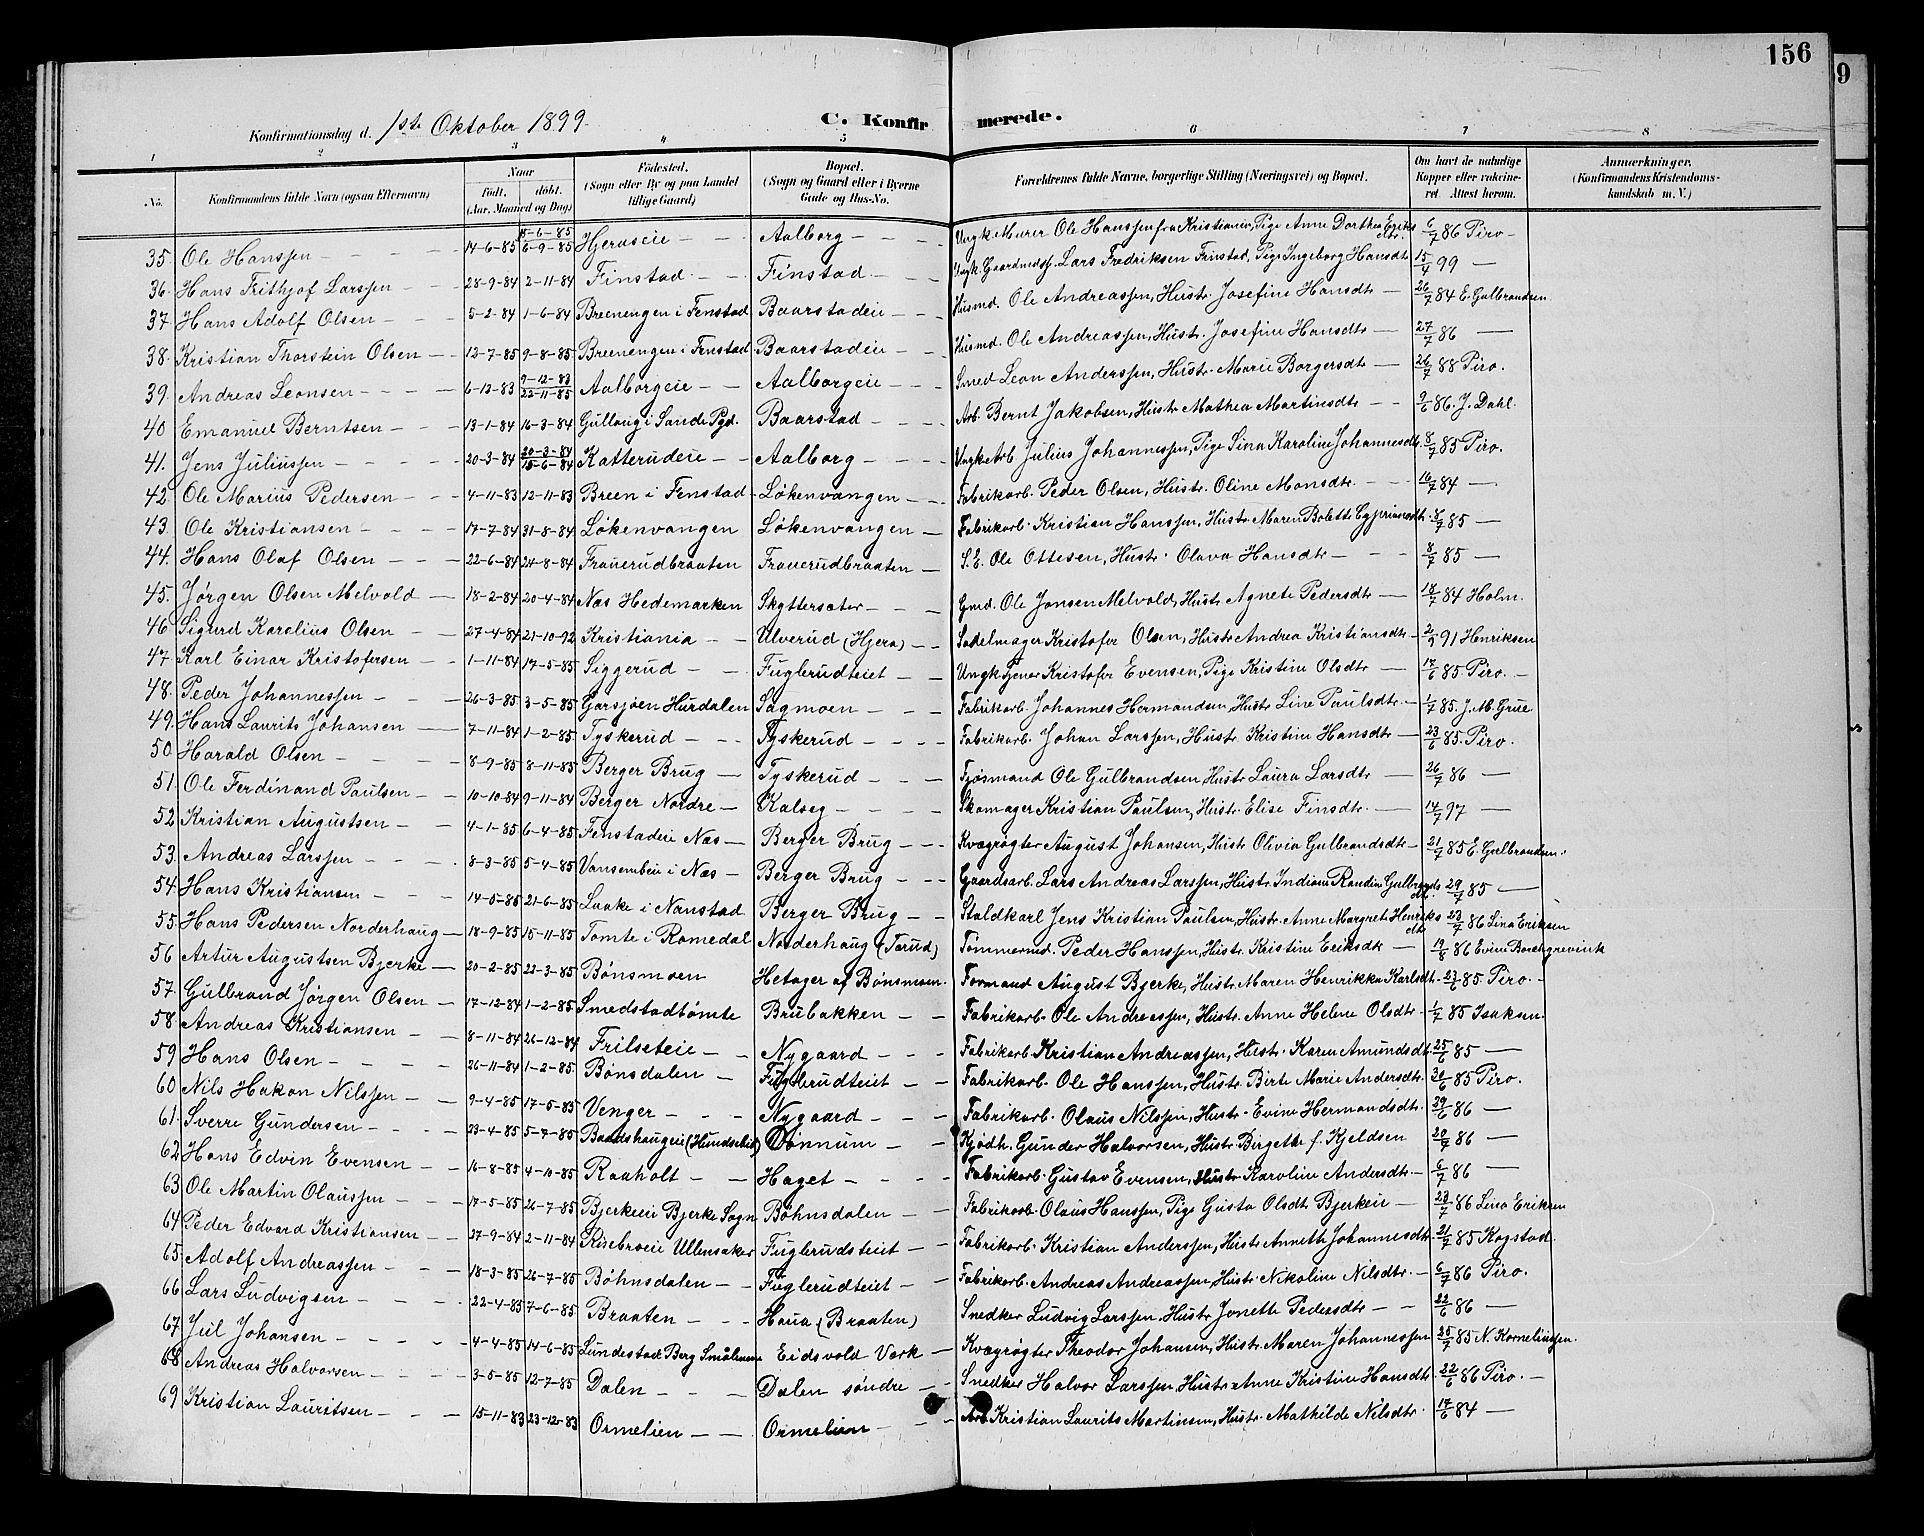 156
9
Konfirmationsdag d. 1ste Oktober 1899. C. Konfirmerede.
1 2 3 4 5 6 7 8
No. Konfirmandens fulde Navn (ogsaa Efternavn) Naar Født. døbt. (Aar, Maaned og Dag) Fødested. (Sogn eller By og paa Landet tillige Gaard) Bopæl. (Sogn og Gaard eller i Byerne Gade og Hus-No. Forældrenes fulde Navne, borgerlige Stilling (Næringsvei) og Bopæl. Om havt de naturlige Kopper eller vaccineret. Attest herom. Anmærkninger. (Konfirmandens Kristendomskundskab m. V.)
35. Ole Hanssen 14-6-85 15-6-85 6-9-85 Hjeraseie Aalborg Ungk. Murer Ole Hanssen fra Kristiania, Pige Anne Dorthea Eriksdtr. 6/7 86 Piro
36. Hans Frithjof Larssen 28-9-84 2-11-84 Finstad Finstad Ungk. Gaardmdss. Lars Fredriksen Finstad, Pige Ingeborg Hansdtr 15/4 99 —
37 Hans Adolf Olsen 5-2-84 1-6-84 Breenengen i Fenstad Baarstadeie Husmd. Ole Andreassen, Hustr. Josefine Hansdtr 26/7 84 E. Gulbrandsen
38. Kristian Thorstein Olsen 12-7-85 9-8-85 Breenengen i Fenstad Baarstadeie Husmd. Ole Andreassen, Hustr. Josefine Hansdtr 27/7 86 —
39. Andreas Leonsen 6-12-83 9-12-83 22-11-85 Aalborgeie Aalborgeie Smed Leon Anderssen, Hustr. Marie Borgersdtr 26/7 88 Piro.
40 Emanuel Berntsen 13-1-84 16-3-84 Gullaug i Sande Pgd. Baarstad Arb. Bernt Jakobsen, Hustr Mathea Martinsdtr 9/6 86. J. Dahl.
41. Jens Juliussen 20-3-84 20-3-84 15-6-84 Katterudeie Aalborg Ungk. Arb. Julius Johannessen, Pige Sina Karoline Johannesdtr. 8/7 85 Piro.
42. Ole Marius Pedersen 4-11-83 12-11-83 Breen i Fenstad Løkenvangen Fabrikarb. Peder Olsen, Hustr. Oline Monsdtr. 16/7 84 —
43. Ole Kristiansen 17-7-84 31-8-84 Løkenvangen Løkenvangen Fabrikarb. Kristian Hanssen, Hustr Maren Bolette Cypriansdtr. 8/7 85 —
44. Hans Olaf Olsen 22-6-84 24-8-84 Frauerudbraaten Frauerudbraaten S. E. Ole Ottesen, Hustr. Olava Hansdtr 8/7 85 —
45. Jørgen Olsen Melvold 18-2-84 20-4-84 Næs Hedemarken Skyttersæter Gmd. Ole Jonsen Melvold, Hustr Agnete Pedersdtr 18/7 84 Holm.
46 Sigurd Karelius Olsen 27-4-84 21-10-92 Kristiania Ulverud (Hjera) Sadelmager Kristofer Olsen, Hustr Andrea Kristiansdtr 2/2 91 Henriksen
47. Karl Einar Kristofersen 1-11-84 17-5-85 Siggerud Fuglerudteiet Ungk. Tjener Kristofer Evensen, Pige Kristine Olsdtr 17/6 85 Piro.
48. Peder Johannessen 26-3-85 3-5-85 Garsjøen Hurdalen Sagmoen Fabrikarb. Johannes Hermandsen, Hustr Line Paulsdtr. 1/7 85. J. M. Grue
49. Hans Laurits Johansen 7-11-84 1-2-85 Tyskerud Tyskerud Fabrikarb. Johan Larssen, Hustr. Kristine Hansdtr 23/6 85 Piro.
50. Harald Olsen 8-9-85 8-11-85 Berger Brug Tyskerud Fjøsmand Ole Gulbrandsen, Hustr Laura Larsdtr 26/7 86 —
51. Ole Ferdinand Paulsen 10-10-84 9-11-84 Berger Nordre Kalseg Skomager Kristian Paulsen, Hustr. Elise Finsdtr. 14/7 97 —
52 Kristian Augustsen 4-1-85 6-4-85 Fenstadeie Næs Berger Brug Kvægrøgter August Johansen, Hustr Olivia Gulbrandsdtr 21/7 85 E. Gulbrandsen.
53. Andreas Larssen 8-3-85 5-4-85 Vansembeie i Næs Berger Brug Gaardsarb. Lars Andreas Larssen, Hustr. Indiane Randine Gulbrandsdtr. 29/7 85 —
54. Hans Kristiansen 14-5-85 21-6-85 Laake i Nanstad Berger Brug Staldkarl Jens Kristian Paulsen, Hustr. Anne Margrete Henriksdtr. 23/7 86 Lina Eriksen
55. Hans Pedersen Norderhaug 18-9-85 15-11-85 Tomte i Romedal Norderhaug (Tarud) Tømmermd. Peder Hanssen, Hustr. Kristine Eriksdtr 19/8 86 Evine Borchgrevink
56 Artur Augustsen Bjerke 20-2-85 22-3-85 Bønsmoen Hetager af Bønsmoen. Formand August Bjerke, Hustr. Maren Henrikka Karlsdtr. 23/6 85. Piro.
57. Gulbrand Jørgen Olsen 17-12-84 1-2-85 Smedstadtomte Brubakken Fabrikarb. Ole Andreassen, Hustr. Anne Helene Olsdtr. 1/7 85 Isaksen.
58. Andreas Kristiansen 8-11-84 26-12-84 Frilseteie Nygaard Fabrikarb. Kristian Andreassen, Hustr. Karen Amundsdtr. 25/6 85 —
59 Hans Olsen 26-11-84 1-2-85 Bønsdalen Fuglerudteiet Fabrikarb. Ole Hanssen, Hustr. Birte Marie Andersdtr. 30/6 85 Piro.
60 Nils Hakon Nilssen 9-4-85 17-5-85 Venger Nygaard Fabrikarb. Olaus Nilssen, Hustr. Evine Hermandsdtr. 29/6 86 —
61. Sverre Gundersen 23-4-85 5-7-85 Baadshaugeie (Hundseid) Dønnum Kjødh. Gunder Halvorsen, Hustr. Birgette f. Kjeldsen 20/7 86 —
62 Hans Edvin Evensen 16-8-85 4-10-85 Raaholt Haget Fabrikarb. Gustav Evensen, Hustr Karoline Andersdtr. 6/7 86 —
63. Ole Martin Olaussen 17-5-85 26-7-85 Bjerkeeie Bjerke Sogn Bøhnsdalen Fabrikarb. Olaus Hanssen, Pige Gusta Olsdtr Bjerkeie 23/7 86 Lina Eriksen
64 Peder Edvard Kristiansen 27-9-84 2-11-84 Risebroeie Ullensaker Fuglerudsteiet Fabrikarb. Kristian Anderssen, Hustr. Annette Johannesdtr. 21/7 85 Kogstad.
65. Adolf Andreassen 18-3-85 26-7-85 Bøhnsdalen Fuglerudteiet Fabrikarb. Andreas Andreassen, Hustr. Nikoline Nilsdtr. 6/7 86 Piro.
66 Lars Ludvigsen 22-4-85 7-6-85 Braaten Haua (Braaten) Snedker Ludvig Larssen, Hustr Jonette Pedersdtr 22/6 86 —
67. Juel Johansen 4-4-85 14-6-85 Lundestad Berg Smålenene Eidsvold Værk Kvægrøgter Theodor Johansen, Hustr. Maren Johannessen 25/7 85 N. Korneliussen.
68 Andreas Halvorsen 3-5-85 12-7-85 Dalen Dalen søndre Snedker Halvor Larssen, Hustr Anne Kristine Hansdtr 22/6 86 Piro.
69 Kristian Lauritsen 15-11-83 23-12-83 Ormelien Ormelien Arb. Kristian Laurits Martinsen, Hustr. Mathilde Nilsdtr. 17/6 84 —